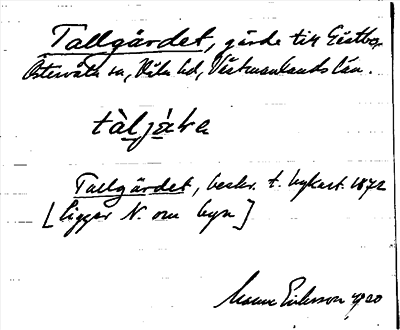 Tallgärdet, gärde till Gästbo,
Östervåla sn, Våla hd, Västmanlands län.
tàljáka
Tallgärdet, beskr. t. bykart. 1872
[ligger N. om byn]
Manne Eriksson 1920